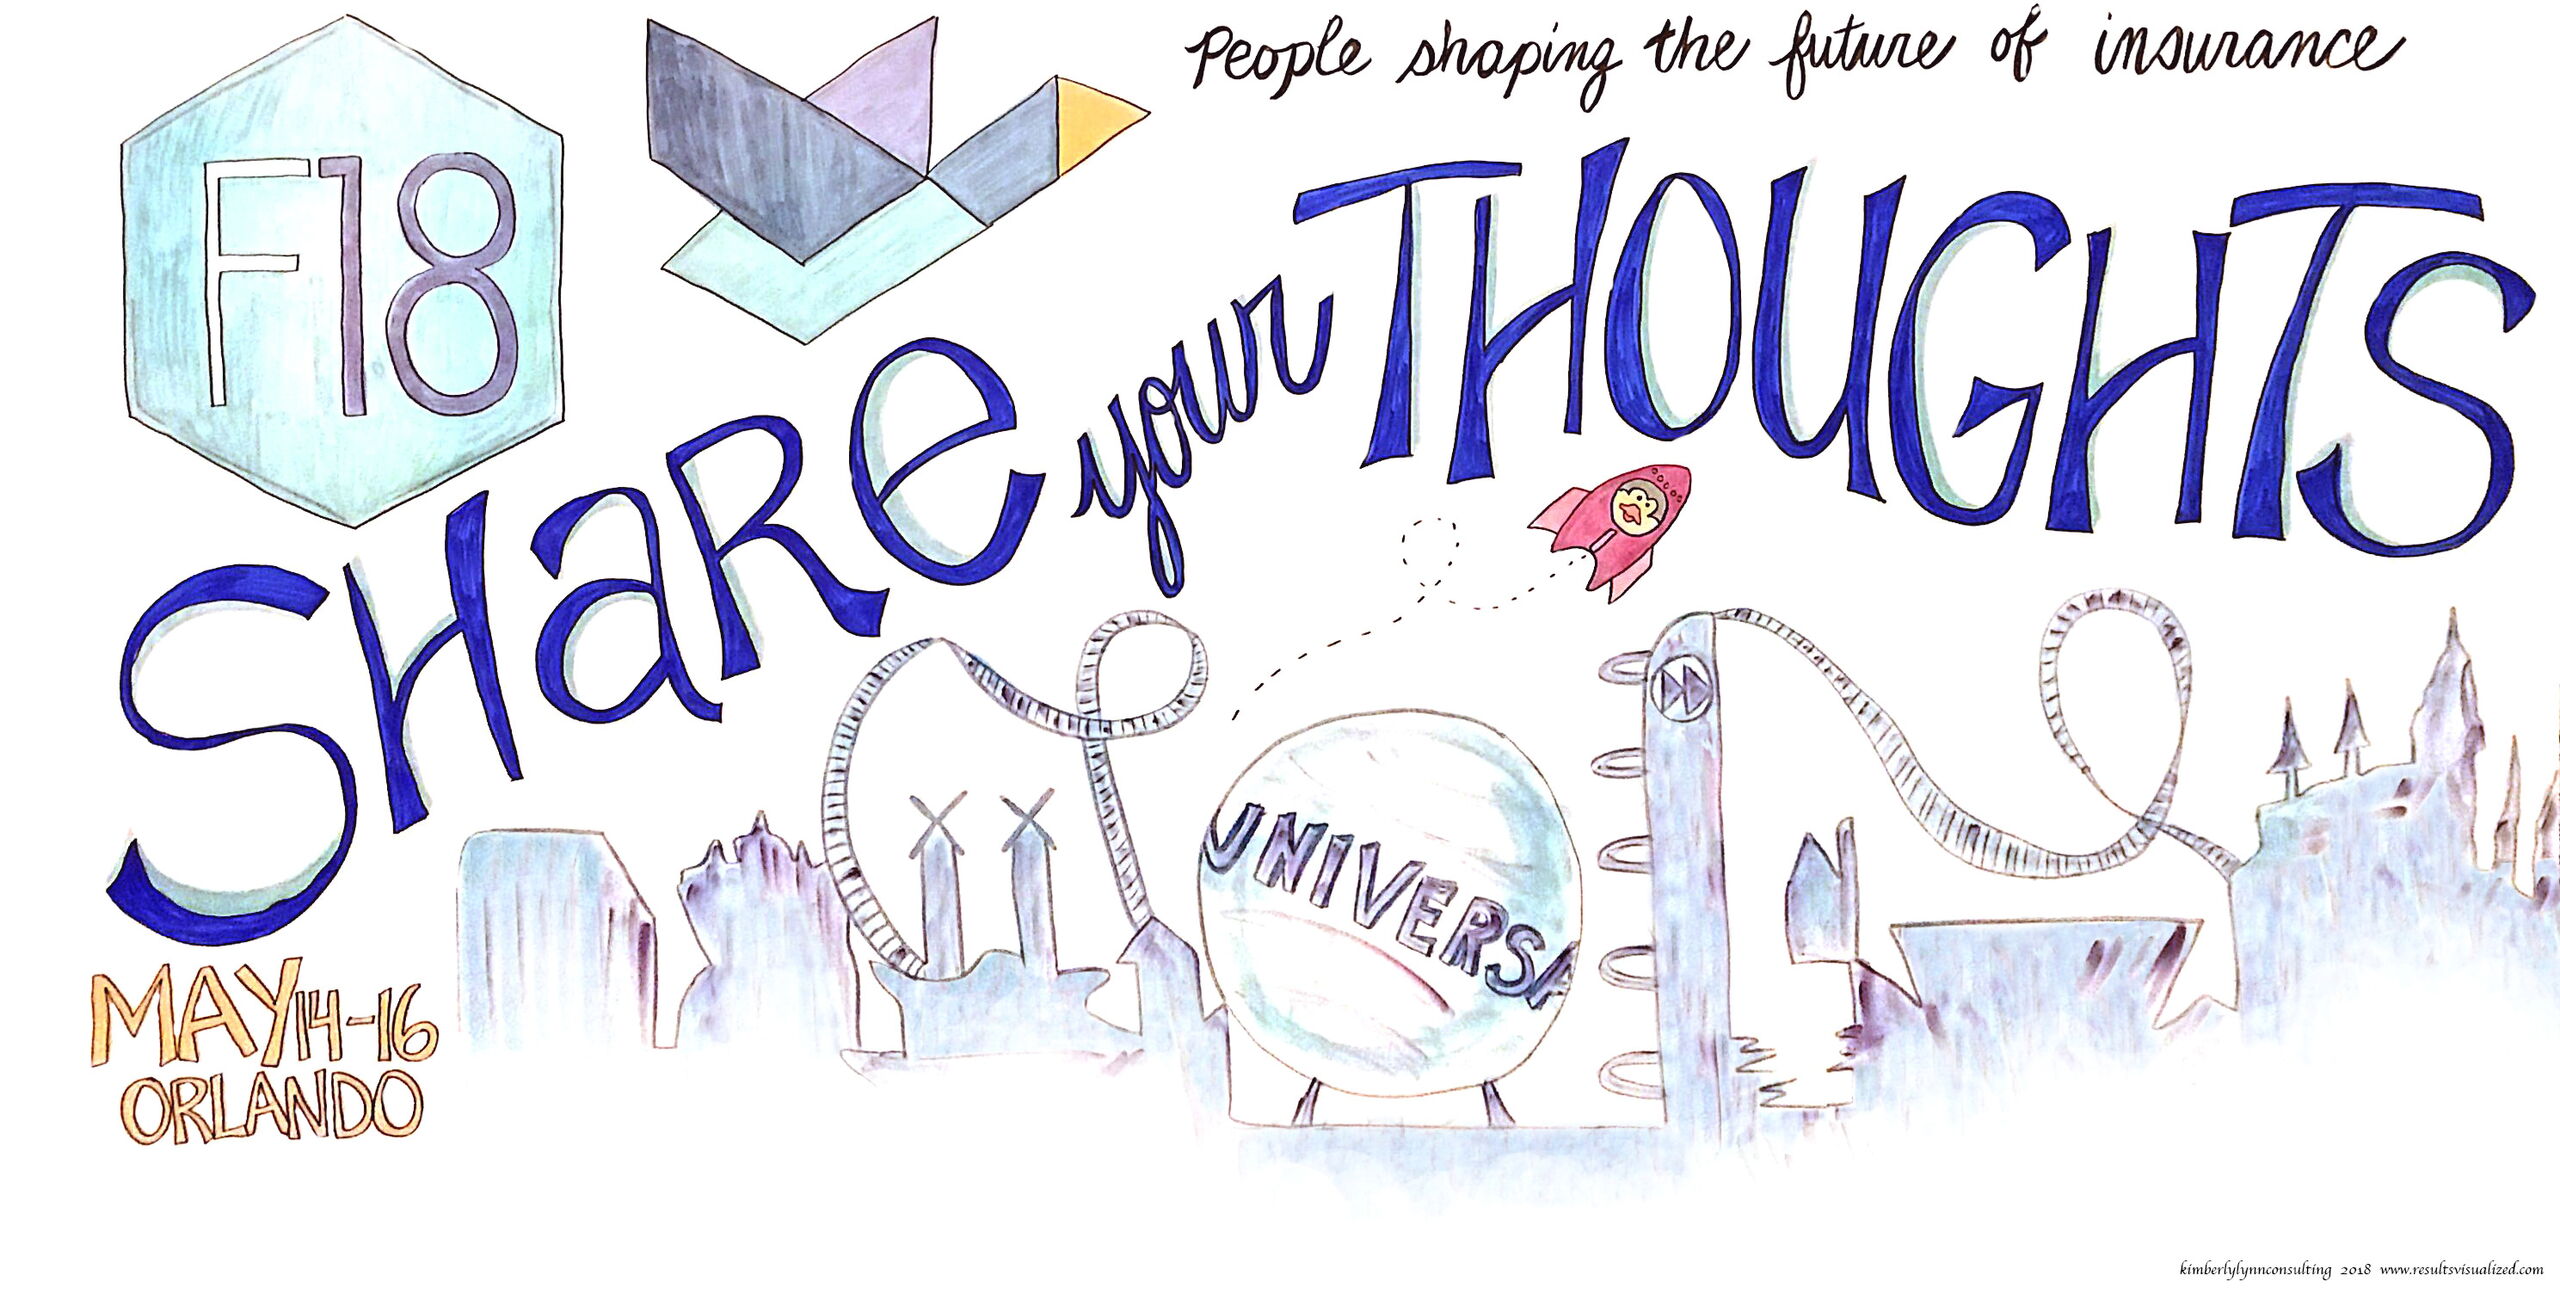 F18
People shaping the future of insurance
SHaRe your THOUGHTS
UNIVERSA
MAY 14-16
ORLANDO
kimberlylynnconsulting 2018 www.resultsvisualized.com